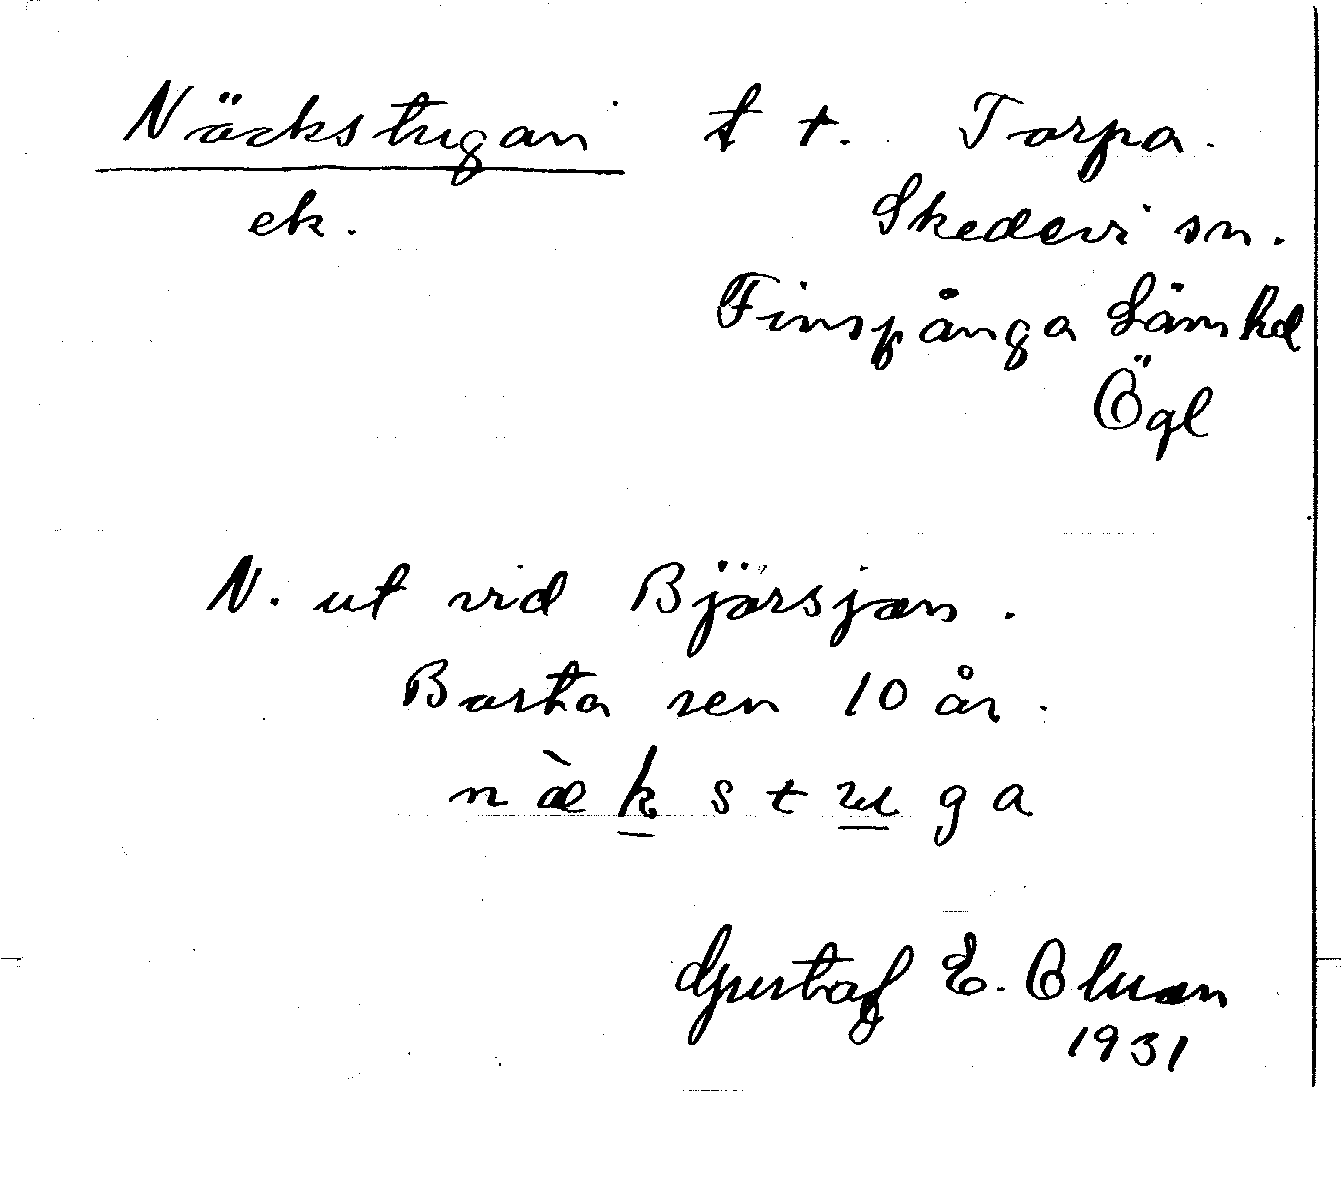 Näckstugan f t. Torpa.
ek. Skedevi sn.
Finspånga Länhd
Ögl
N. ut vid Björsjön.
Borta sen 10 år.
n æ̀ k s t u g a
Gustaf E. Olsson
1931